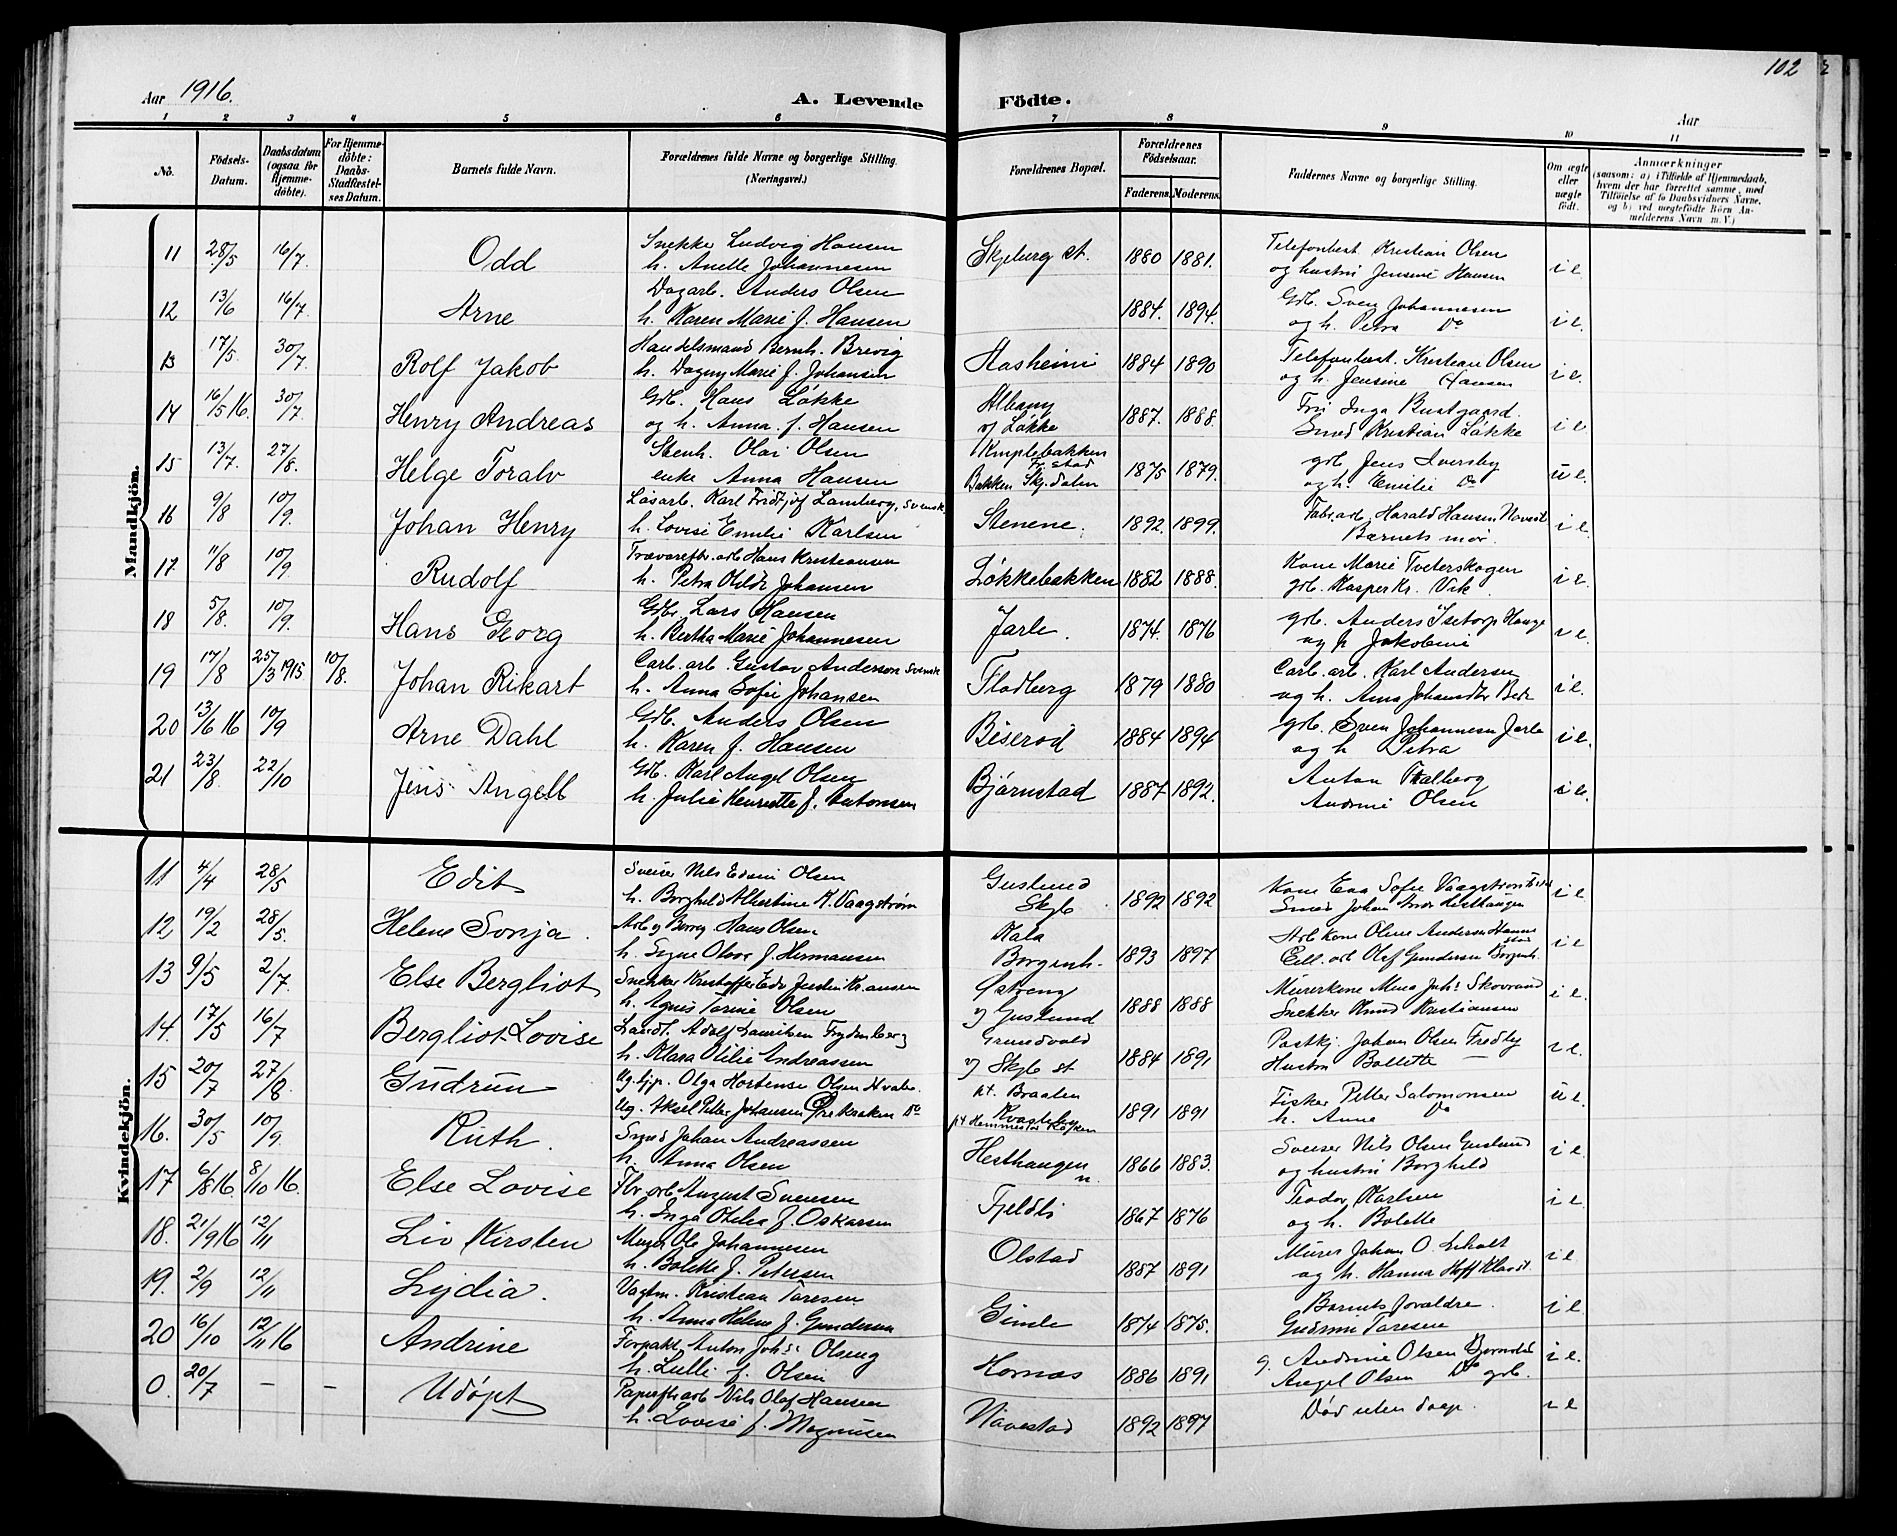 102
Aar 1916.
A. Levende Födte.
Aar
1 2 3 4 5 6 7 8 9 10 11
No.
Födsels-Datum.
Daabsdatum (ogsaa for Hjemme-döbte).
For Hjemme-döbte: Daabs-Stadfæstel-ses Datum.
Barnets fulde Navn.
Forældrenes fulde Navne og borgerlige Stilling. (Næringsvei.)
Forældrenes Bopæl.
Forældrenes Födselsaar.
Faderens. Moderens.
Faddernes Navne og borgerlige Stilling.
Om ægte eller uægte födt.
Anmærkninger
(saasom: a) i Tilfælde af Hjemmedaab, hvem der har forrettet samme, med Tilföielse af to Daabsvidners Navne, og b) ved uægtefödte Börn An-melderens Navn m. V.)
Mandkjön.
11 28/5 16/7 Odd Snekke Ludvig Hansen Skjeberg st. 1880 1881. Telefonbest Kristian Olsen i e
h. Anette Johannesen og hustru Jensine Hansen
12 13/6 16/7 Arne Dagarb. Anders Olsen 1884. 1894. Gdb. Sven Johannesen i e.
h. Karen Marie f. Hansen og h. Petra Do
13 17/5 30/7 Rolf Jakob Handelsmand Bernh. Brevig Aasheim 1884 1890 Telefonbest. Kristian Olsen i e.
h. Dagny Marie f. Johansen og h. Jensine Hansen
14 16/5 16. 30/7 Henry Andreas Gdb. Hans Løkke Albany 1887. 1888. Frk Inga Bustgaard. i e
og h. Anna f. Hansen v/ Løkke Smed Kristian Løkke
15 13/7 27/8. Helge Toralv Stenh. Olai Olsen Kniplebakken Fr.stad 1875 1879. gdb Jens Iversby u e.
enke Anna Hansen Bakken Skj.dalen og h. Emilie Do
16 9/8 10/9. Johan Henry Løsarb. Karl Fridtjof Lamberg, svensk Stenene. 1892. 1899. Fabr.arb. Harald Hansen Navest i e.
h. Lovise Emilie Karlsen Barnets mor.
17. 11/8 10/9 Rudolf Trævareftr. arb Hans Kristiansen Løkkebakken 1882 1888. Kone Marie Tveterskogen i e.
h. Petra Olilde Johansen gdb. Kasper Kr. Vik.
18 5/8. 10/9. Hans Georg Gdbr Lars Hansen Jarle. 1874. 1876 grb. Anders Isetorp Hauge i e.
h. Bertha Marie Johannesen og h Jakobine
19 17/8 25/3 1915 10/8. Johan Rikart Carb. arb. Gustav Anderson svensk Fladberg 1879 1880 Carb. arb. Karl Andersen i e.
h. Anna Sofie Johansen og h. Anna Johansdtr
20 13/6 16 10/9 Arne Dahl Gdb. Anders Olsen Biserød 1884 1894 grb. Sven Johannesen Jarle i e.
h. Karen f. Hansen og h Petra
21 23/8. 22/10 Jens Angell Gdb. Karl Angel Olsen Bjørnstad 1887 1892. Anton Thalberg i e.
h. Julie Henriette f. Antonsen Andrine Olsen
Kvindekjön.
11 4/4 28/5 Edit Sveiser Nils Edvin Olsen Guslund 1892 1892 Kone Eva Sofie Vaagstrøm i e
h. Borghild Albertine K. Vaagstrøm Skjb. Smed Johan Andr Hesthaugen
12 19/2 28/5. Helene Sonja. Arb. Hans Olsen Kala 1893 1897 Arb kone Oline Andersen i e
h. Signe Olava f. Hermansen Borgenh. Cell. arb Olaf Gundersen Borgenh.
13 9/5 2/7. Else Bergliot Snekker Kristoffer Østreng 1888 1888 Murerkone Mina Johs Skovrand i e.
h. Agnes Torine Olsen v/ Guslund Snekker Knud Kristiansen
14. 17/5 16/7 Bergliot Lovise Landh. Adolf Lauritsen Frydenberg Grundvold 1884 1891 Postkj. Johan Olsen Fredly i e.
h. Klara Otilie Andreassen v/ Skjb st Hustru Bolette —
15 20/7 27/8 Gudrun Ug. tjp. Olga Hortense Olsen Hvaler. pt. Braaten 1891 1891 Fisker Petter Salomonsen u e.
Ug. Aksel Petter Johansen Do h. Anne Do
16. 30/5 10/9. Ruth. Smed Johan Andreassen Hesthaugen 1866 1883. Sveiser Nils Olsen Guslund i e
h. Anna Olsen og hustru Borghild
17 6/8 16. 8/10 16. Else Lovise Fbr. arb August Svensen Fjeldli 1867 1876 Teodor Karlsen i e
h. Inga Otilia f. Oskarsen og h. Bolette
18. 21/9 16 12/11 Liv Kirsten Murer Ole Johannesen Olstad 1887 1891 Murer Johan O. i e
h. Bolette f. Petersen og h. Hanna Hoff
19. 2/9 12/11 Lydia. Vagtm. Kristian Toresen Gimle 1874 1875. Barnets forældre. i e.
h. Anna Helene f. Gundersen Gudrun Toresen
20 16/10 12/11 16 Andrine Forpakt. Anton Johs Olseng Hornæs 1886 1891 g. Andrine Olsen Bjørnstad i e.
h. Lulli f. Olsen Angel Olsen Do grb.
0. 20/7 — — Udøpt Papirfb arb Nils Olaf Hansen Navestad 1892 1897 Død uten daap. i e
h. Lovise f. Magnusen